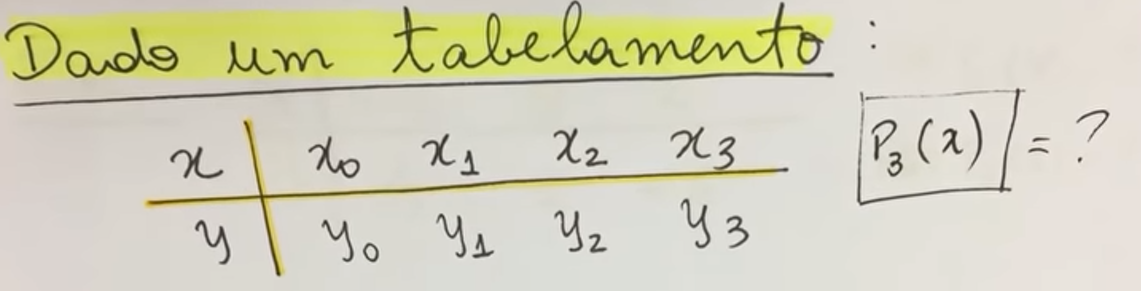 Dado um tabelamento :
x x₀ x₁ x₂ x₃
y y₀ y₁ y₂ y₃
P₃(x) = ?